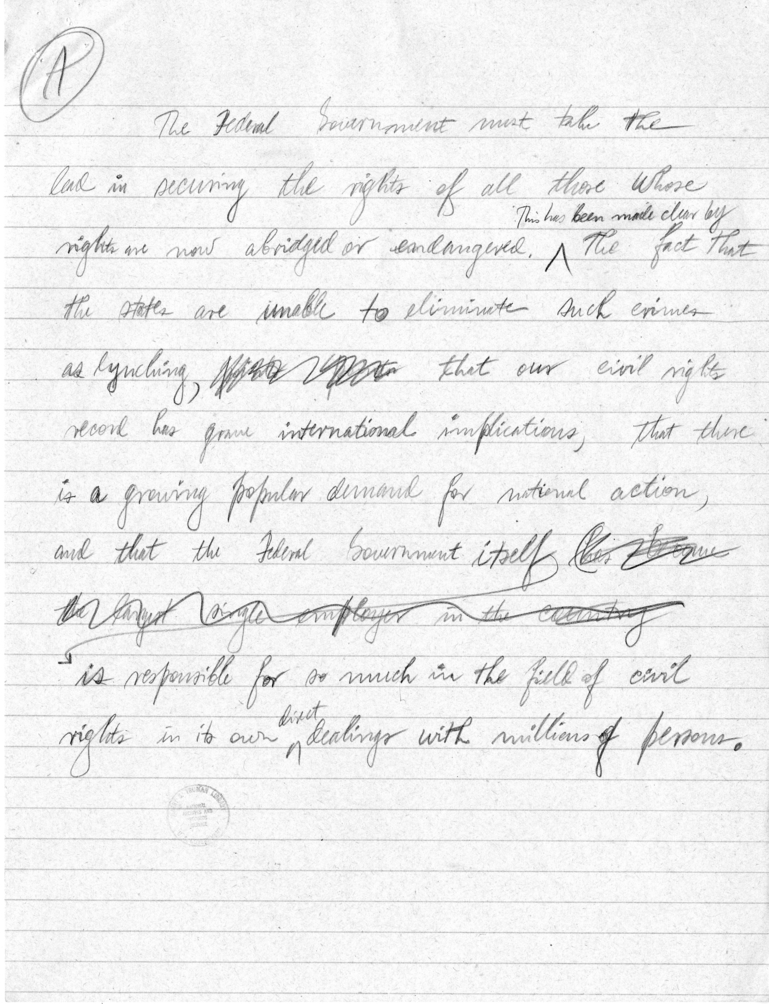 A
The Federal Government must take the
lead in securing the rights of all those whose
This has been made clear by
rights are now abridged or endangered. ∧ The fact that
the states are unable to eliminate such crimes
as lynching, that our civil rights
record has grave international implications, that there
is a growing popular demand for national action,
and that the Federal Government itself has become
the largest single employer in the country
is responsible for so much in the field of civil
direct
rights in its own ∧ dealings with millions of persons.